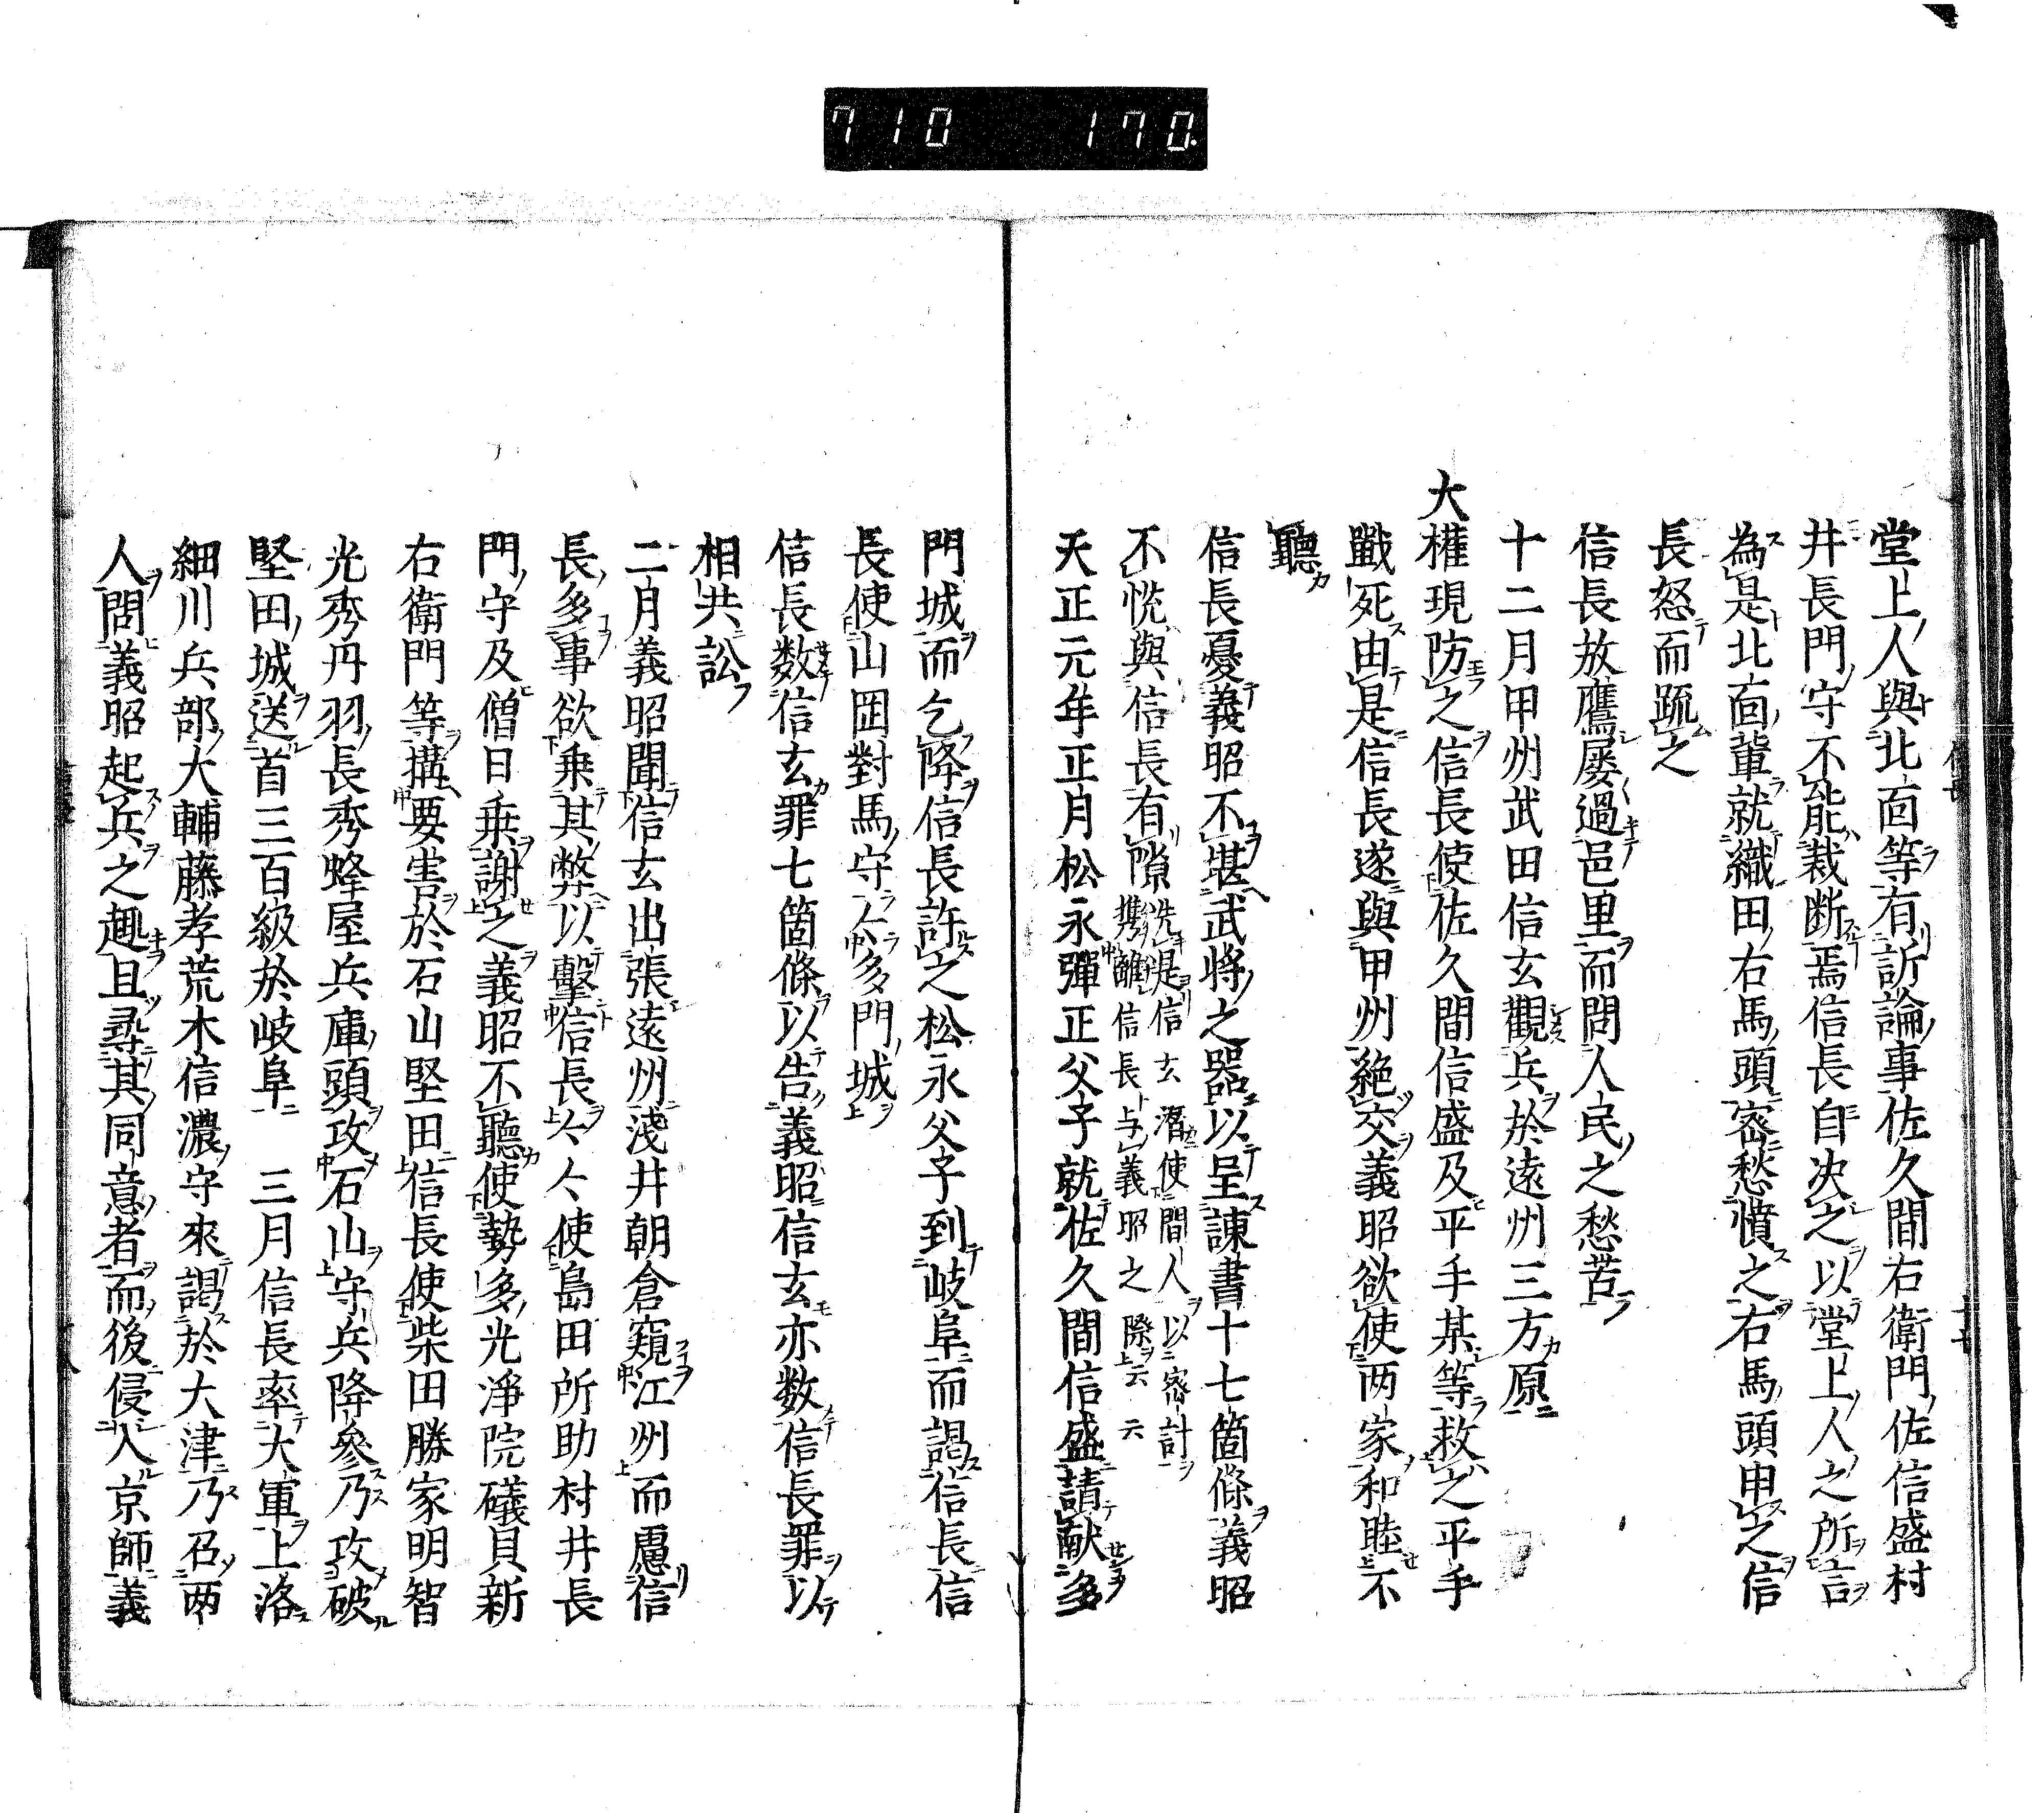 710 170
堂上人與北面等有訴論事佐久間右衛門佐信盛村
井長門守不能裁断焉信長自决之以堂上人之所言
為是北面輩就織田右馬頭密愁憤之右馬頭申之信
長怒而疏之
信長放鷹屡過邑里而問人民之愁苦
十二月甲州武田信玄觀兵於遠州三方原
大權現防之信長使佐久間信盛及平手某等救之平手
戰死由是信長遂與甲州絶交義昭欲使两家和睦不
聽
信長憂義昭不堪武將之器以呈諫書十七箇條義昭
不悦與信長有隙先是信玄潛使間人以密計
携離信長与義昭之際云云
天正元年正月松永彈正父子就佐久間信盛請献多
門城而乞降信長許之松永父子到岐阜而謁信長信
長使山岡對馬守入多門城
信長数信玄罪七箇條以告義昭信玄亦数信長罪以
相共訟
二月義昭聞信玄出張遠州淺井朝倉窺江州而慮信
長多事欲乗其弊以擊信長仌仌使島田所助村井長
門守及僧日乗謝之義昭不聽使勢多光淨院礒貝新
右衛門等搆要害於石山堅田信長使柴田勝家明智
光秀丹羽長秀蜂屋兵庫頭攻石山守兵降參乃攻破
堅田城送首三百級於岐阜 三月信長率大軍上洛
細川兵部大輔藤孝荒木信濃守來謁於大津乃召两
人問義昭起兵之趣且尋其同意者而後侵入京師義